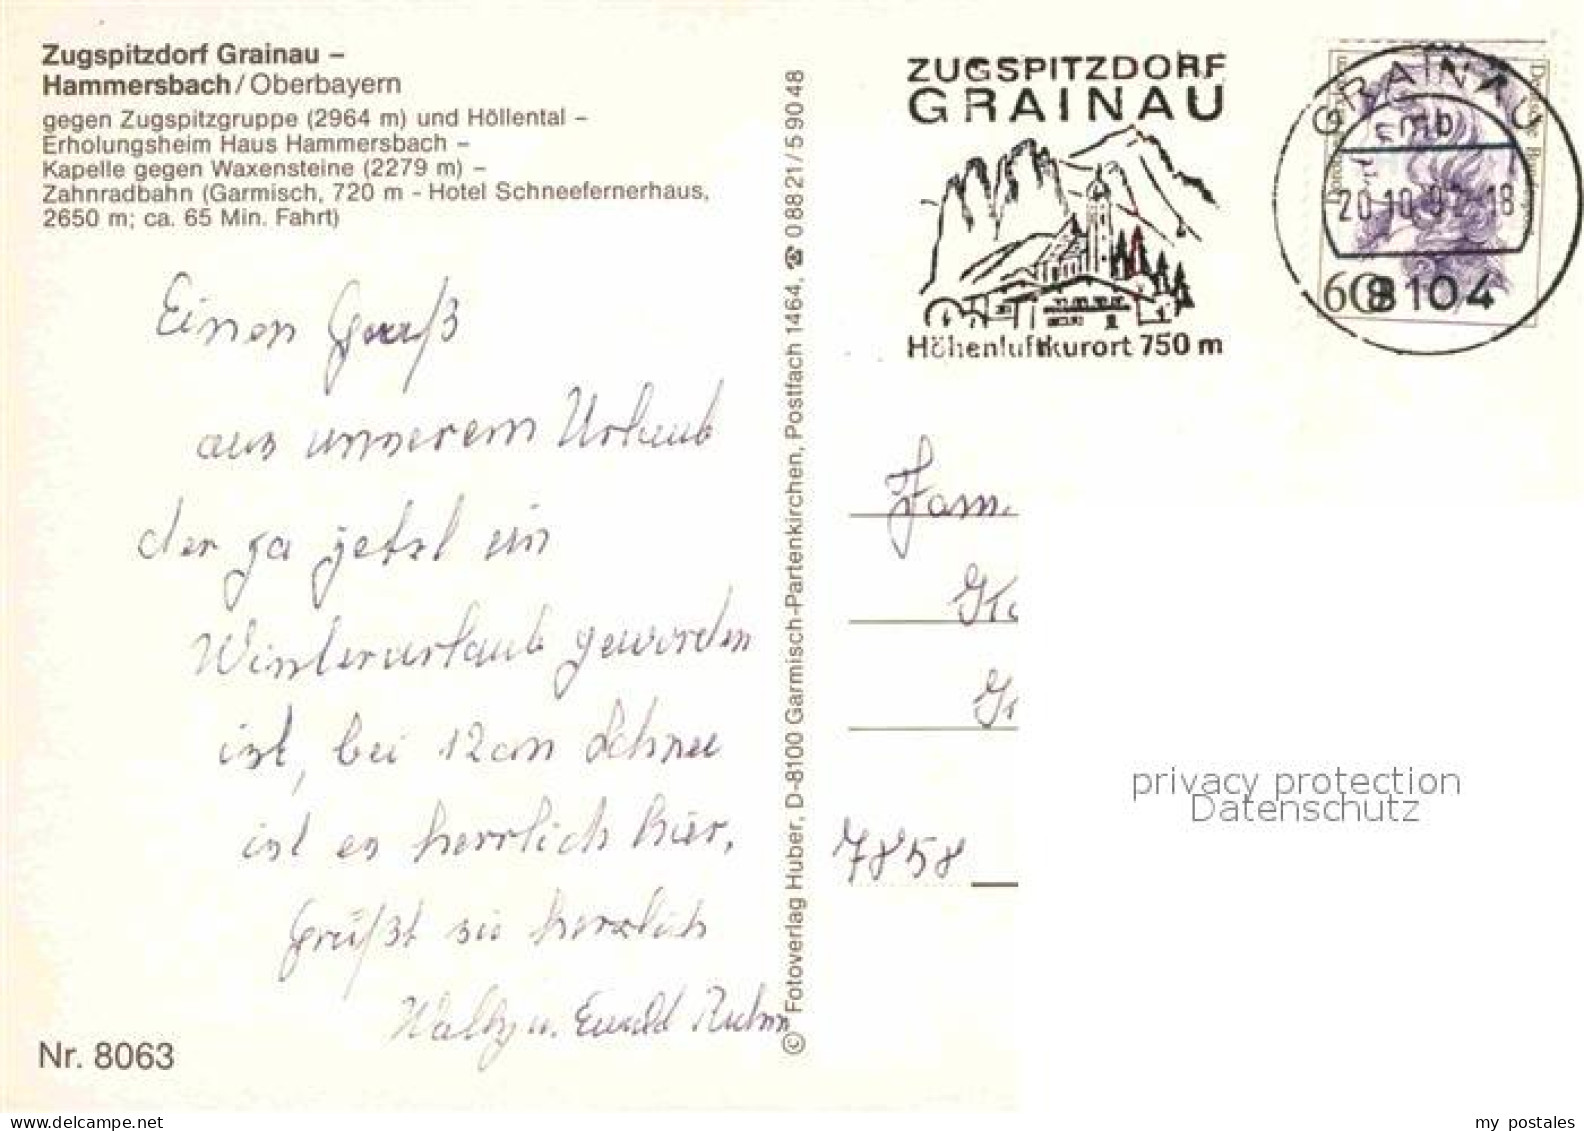 Zugspitzdorf Grainau –
Hammersbach/Oberbayern
gegen Zugspitzgruppe (2964 m) und Höllental –
Erholungsheim Haus Hammersbach –
Kapelle gegen Waxensteine (2279 m) –
Zahnradbahn (Garmisch, 720 m - Hotel Schneefernerhaus,
2650 m; ca. 65 Min. Fahrt)
Einen Gruß
aus unserem Urlaub
der ja jetzt ein
Winterurlaub geworden
ist, bei 12 cm Schnee
ist es herrlich hier,
grüßt sie herzlich
u. Ewald
Nr. 8063
© Fotoverlag Huber, D-8100 Garmisch-Partenkirchen, Postfach 1464, ☎ 08821/59048
ZUGSPITZDORF
GRAINAU
Höhenluftkurort 750 m
GRAINAU
mb
20.10.92-18
8104
60
Fam.
7858
privacy protection
Datenschutz
© akpool.de
my postales